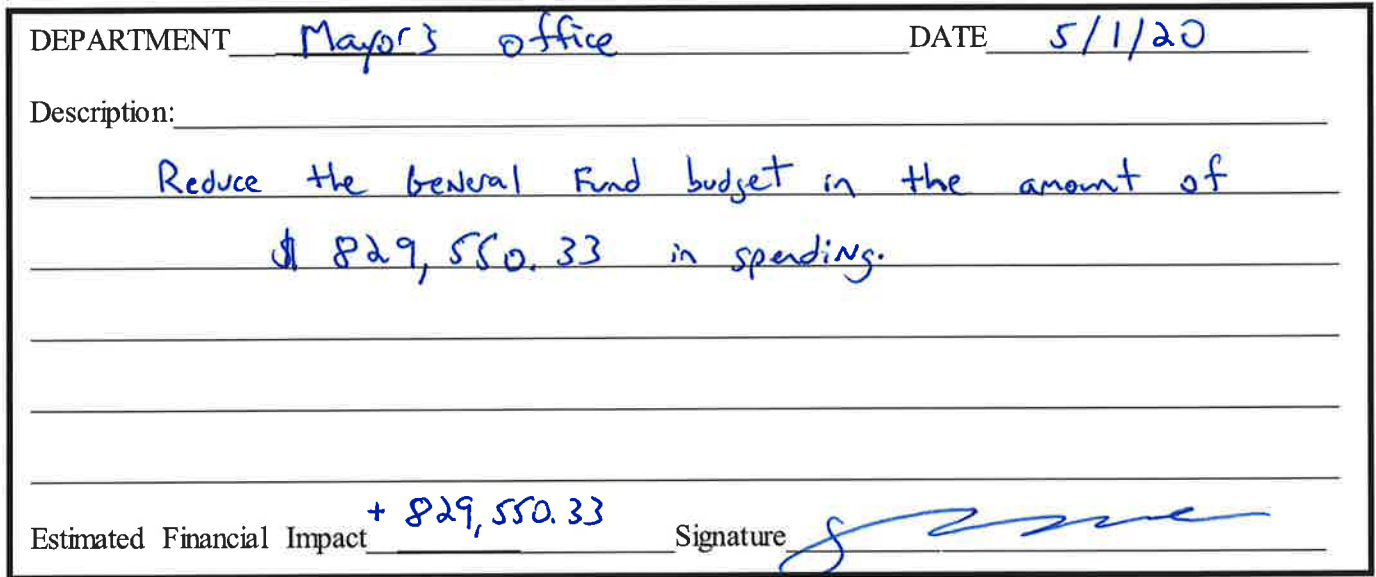 DEPARTMENT Mayor's office DATE 5/1/20
Description:
Reduce the General Fund budget in the amount of
$ 829,550.33 in spending.
+ 829,550.33
Estimated Financial Impact Signature